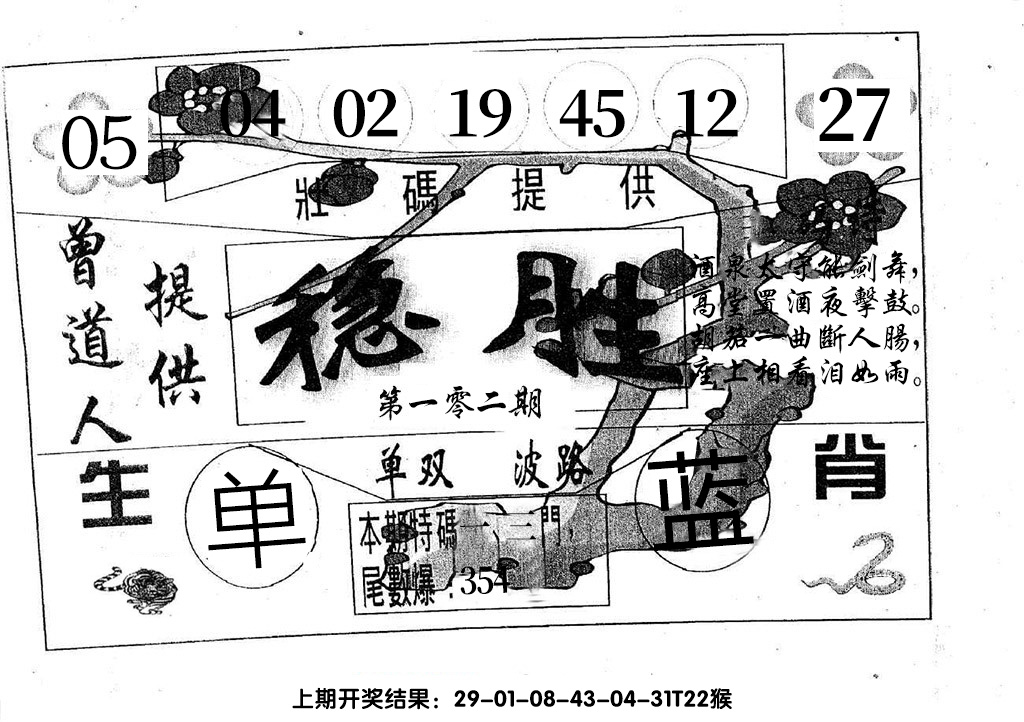 05 04 02 19 45 12 27
壯碼提供
曾道人
提供
稳胜
第一零二期
酒泉太守能劍舞，
高堂置酒夜擊鼓。
胡笳一曲斷人腸，
座上相看泪如雨。
单双 波路
生肖
单
蓝
本期特碼一、三門，
尾數爆：354
上期开奖结果：29-01-08-43-04-31T22猴